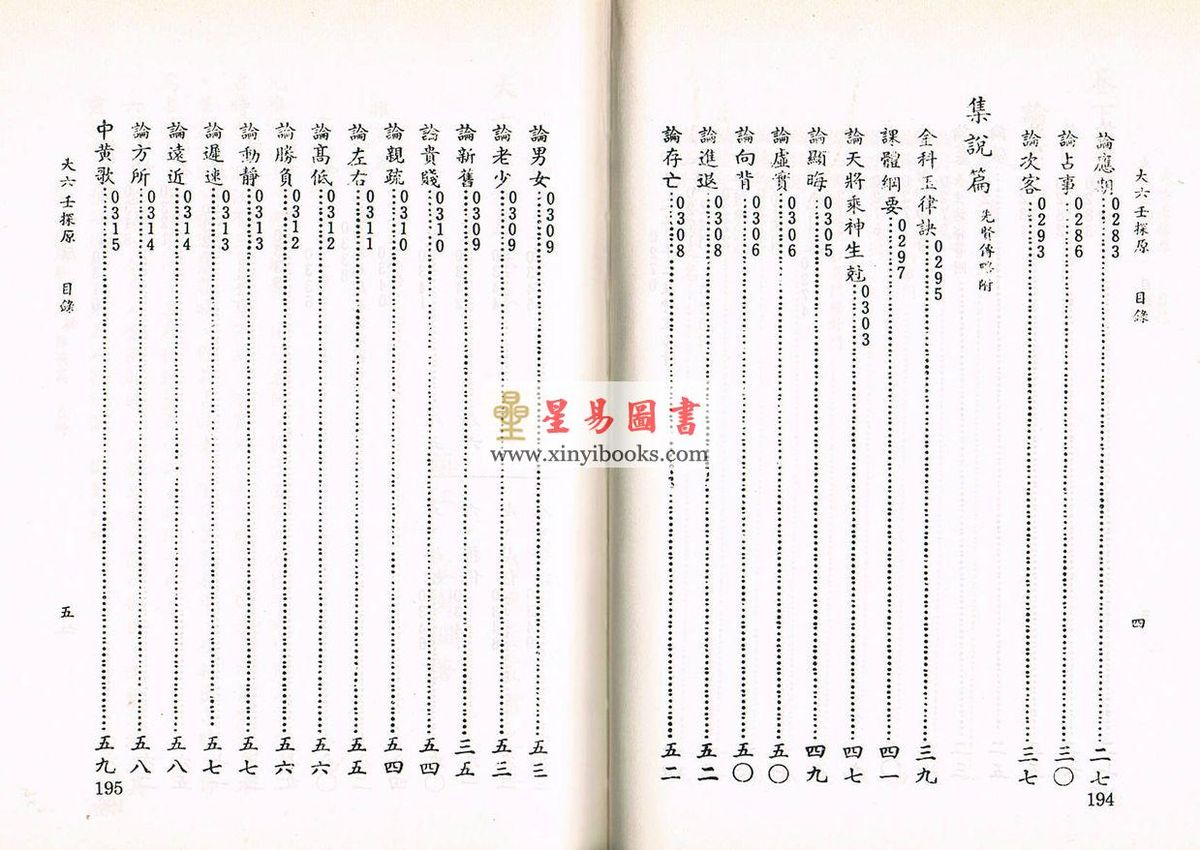 大六壬探原　目錄
四
論應期0283……二七
論占事0286……三〇
論次客0293……三七
集說篇 先賢傳略附
金科玉律訣0295……三九
課體綱要0297……四一
論天將乘神生尅0303……四七
論顯晦0305……四九
論虛實0306……五〇
論向背0306……五〇
論進退0308……五二
論存亡0308……五二
194
論男女0309……五三
論老少0309……五三
論新舊0309……三五
論貴賤0310……五四
論親疏0310……五四
論左右0311……五五
論高低0312……五六
論勝負0312……五六
論動靜0313……五七
論遲速0313……五七
論遠近0314……五八
論方所0314……五八
中黄歌0315……五九
大六壬探原　目錄
五
195
星易圖書
www.xinyibooks.com